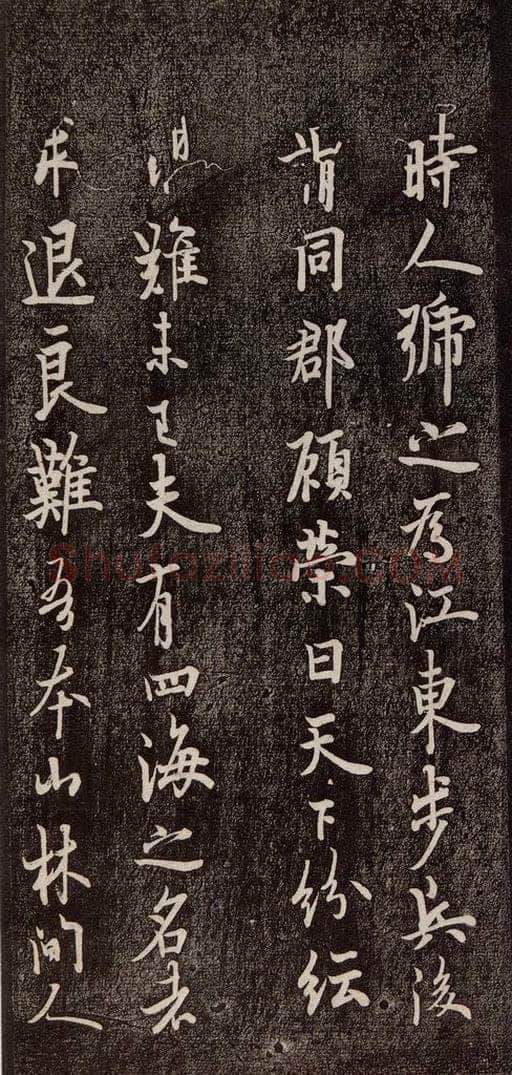 時人號之為江東步兵後
謂同郡顧榮曰天下紛紜
難未已夫有四海之名者
求退良難吾本山林間人
Shufaziliao.COM